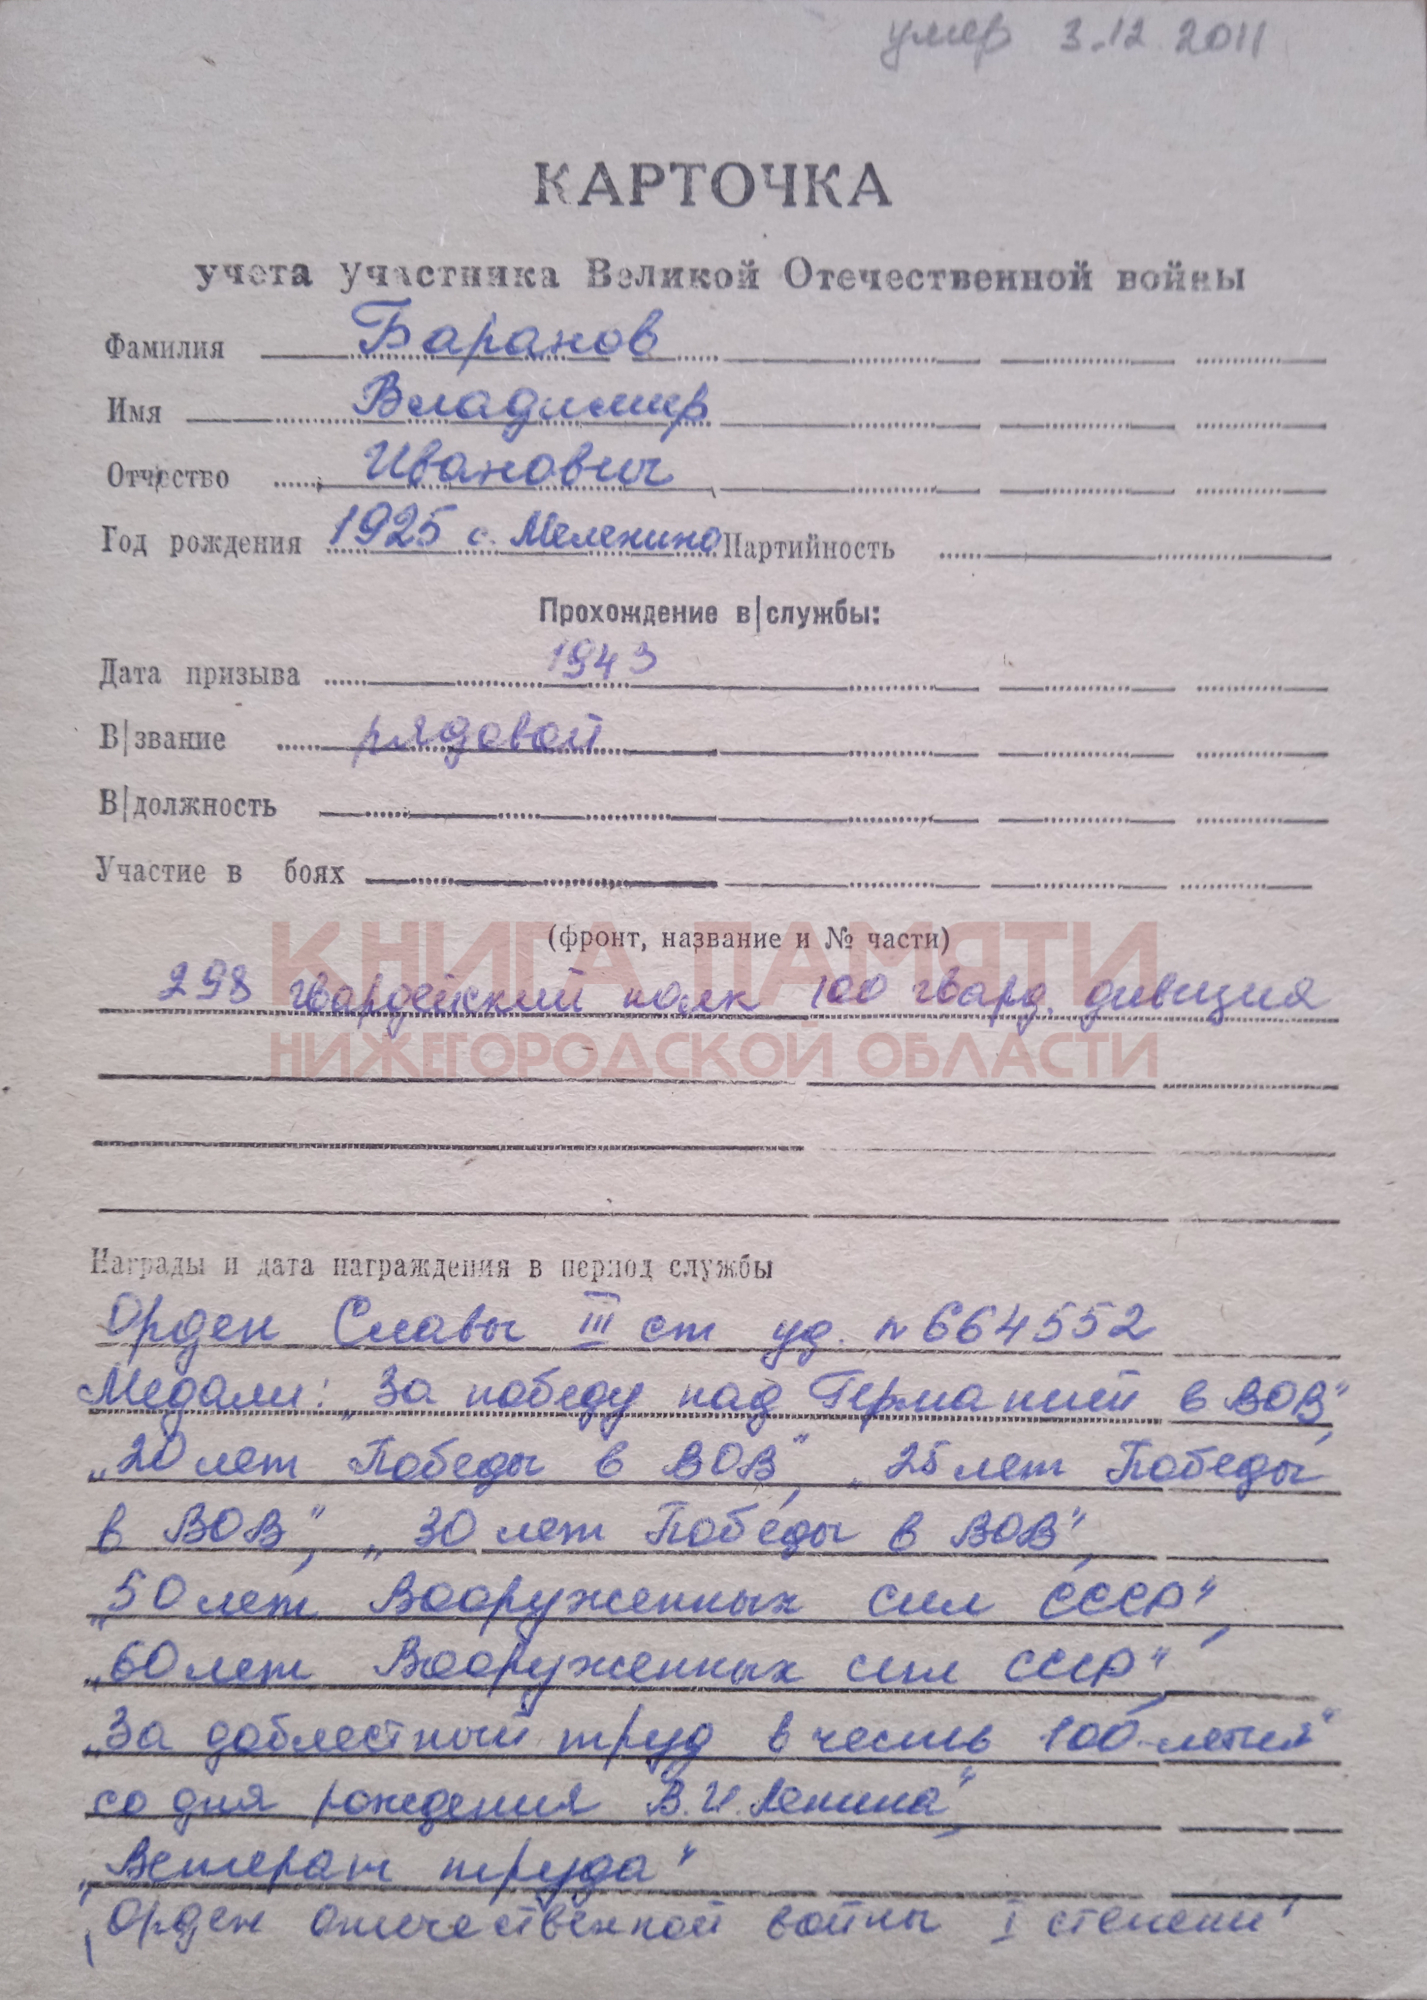 умер 3.12 2011
КАРТОЧКА
учета участника Великой Отечественной войны
Фамилия Баранов
Имя Владимир
Отчество Иванович
Год рождения 1925 с. Меленино Партийность
Прохождение в|службы:
Дата призыва 1943
В|звание рядовой
В|должность
Участие в боях
КНИГА ПАМЯТИ
(фронт, название и № части)
298 гвардейский полк 100 гвард. дивизия
НИЖЕГОРОДСКОЙ ОБЛАСТИ
Награды и дата награждения в период службы
Орден Славы III ст уд. № 664552
Медали: „За победу над Германией в ВОВ",
„20 лет Победы в ВОВ", „25 лет Победы
в ВОВ", „30 лет Победы в ВОВ",
„50 лет Вооруженных сил СССР",
„60 лет Вооруженных сил СССР",
„За доблестный труд в честь 100-летия"
со дня рождения В.И. Ленина",
„Ветеран труда"
„Орден отечественной войны I степени"